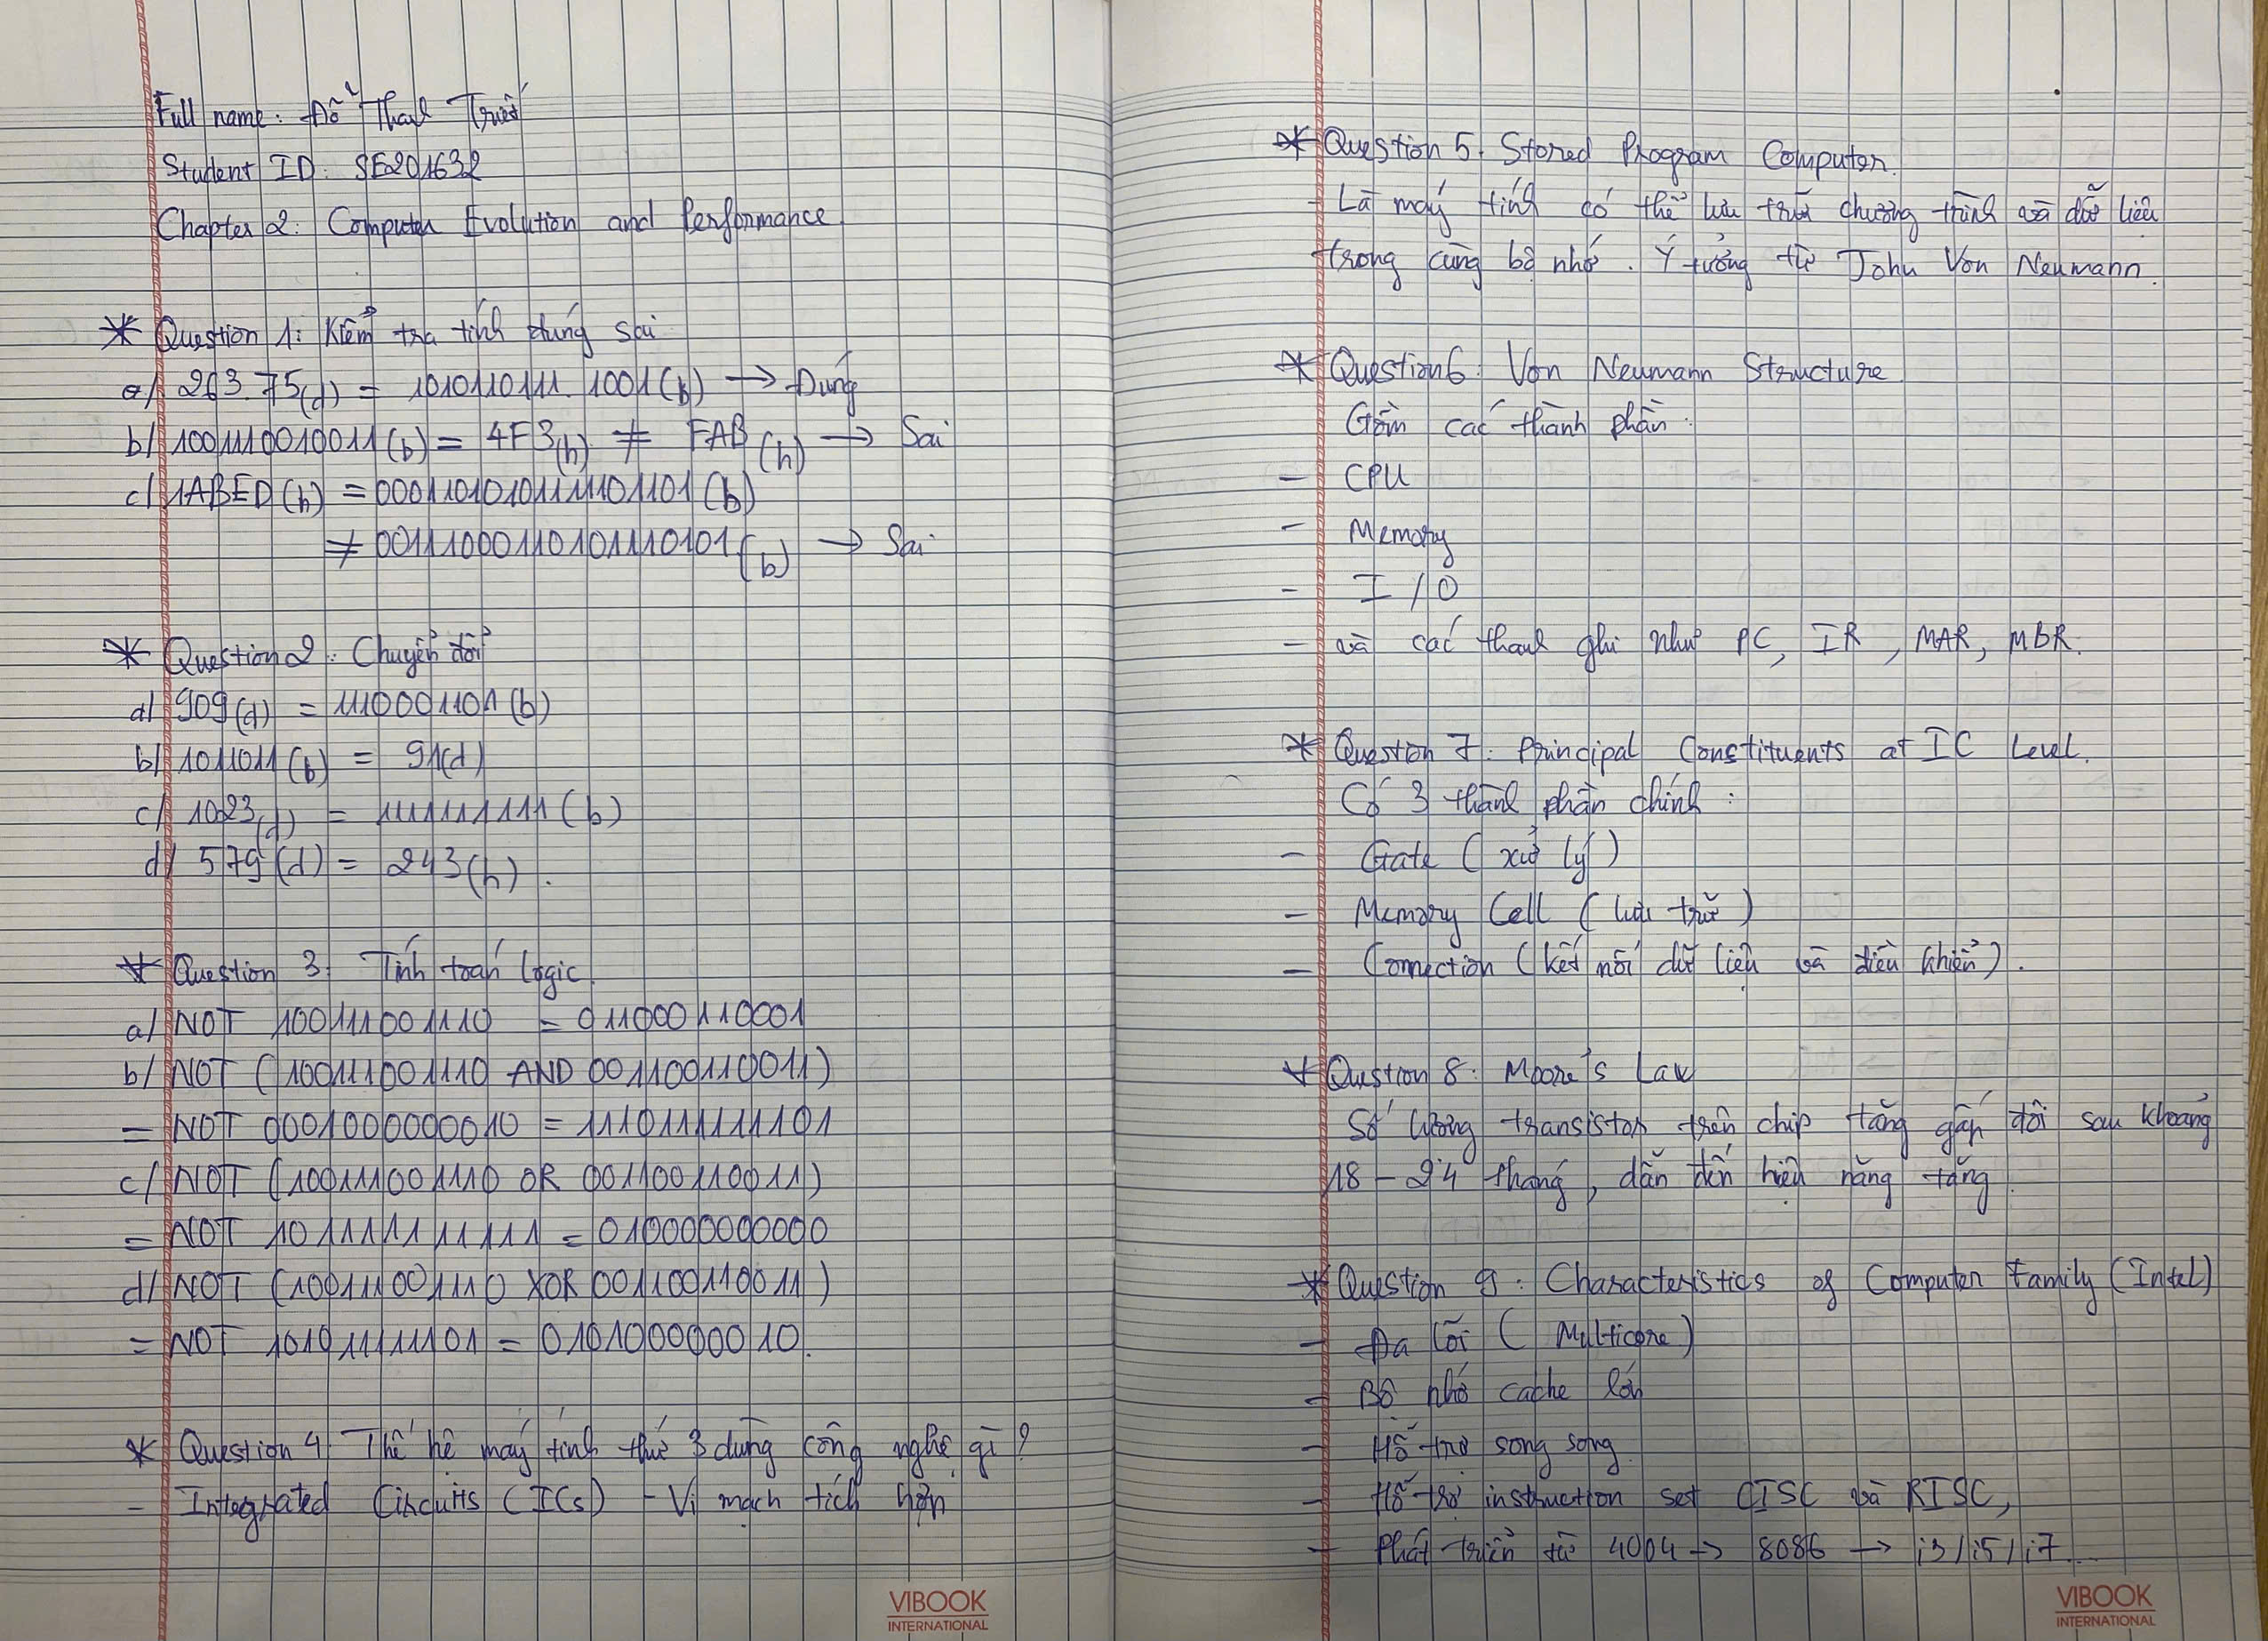 Full name: Đỗ Thanh Triết
Student ID: SE201632
Chapter 2: Computer Evolution and Performance
* Question 1: Kiểm tra tính đúng sai
a/ 263.75(d) = 1010110111.1001(b) → Đúng
b/ 10011110010011(b) = 4F3(h) ≠ FAB(h) → Sai
c/ 1ABED(h) = 00011010101111101101(b)
≠ 0011100011010111 0101(b) → Sai
* Question 2: Chuyển đổi
a/ 909(d) = 1110001101(b)
b/ 1011011(b) = 91(d)
c/ 1023(d) = 1111111111(b)
d/ 579(d) = 243(h).
* Question 3: Tính toán logic
a/ NOT 100111001110 = 011000110001
b/ NOT (100111001110 AND 001100110011)
= NOT 000100000010 = 111011111101
c/ NOT (100111001110 OR 001100110011)
= NOT 101111111111 = 010000000000
d/ NOT (100111001110 XOR 001100110011)
= NOT 101011111101 = 010100000010.
* Question 4: Thế hệ máy tính thứ 3 dùng công nghệ gì?
- Integrated Circuits (ICs) - Vi mạch tích hợp
* Question 5: Stored Program Computer.
- Là máy tính có thể lưu trữ chương trình và dữ liệu
trong cùng bộ nhớ. Ý tưởng từ John Von Neumann.
* Question 6: Von Neumann Structure
Gồm các thành phần:
- CPU
- Memory
- I/O
- và các thanh ghi như PC, IR, MAR, MBR.
* Question 7: Principal Constituents at IC Level.
Có 3 thành phần chính:
- Gate (xử lý)
- Memory Cell (lưu trữ)
- Connection (kết nối dữ liệu và điều khiển).
* Question 8: Moore's Law
Số lượng transistor trên chip tăng gấp đôi sau khoảng
18 - 24 tháng, dẫn đến hiệu năng tăng.
* Question 9: Characteristics of Computer Family (Intel)
- Đa lõi (Multicore)
- Bộ nhớ cache lớn
- Hỗ trợ song song
- Hỗ trợ instruction set CISC và RISC,
- Phát triển từ 4004 → 8086 → i3/i5/i7...
VIBOOK
INTERNATIONAL
VIBOOK
INTERNATIONAL